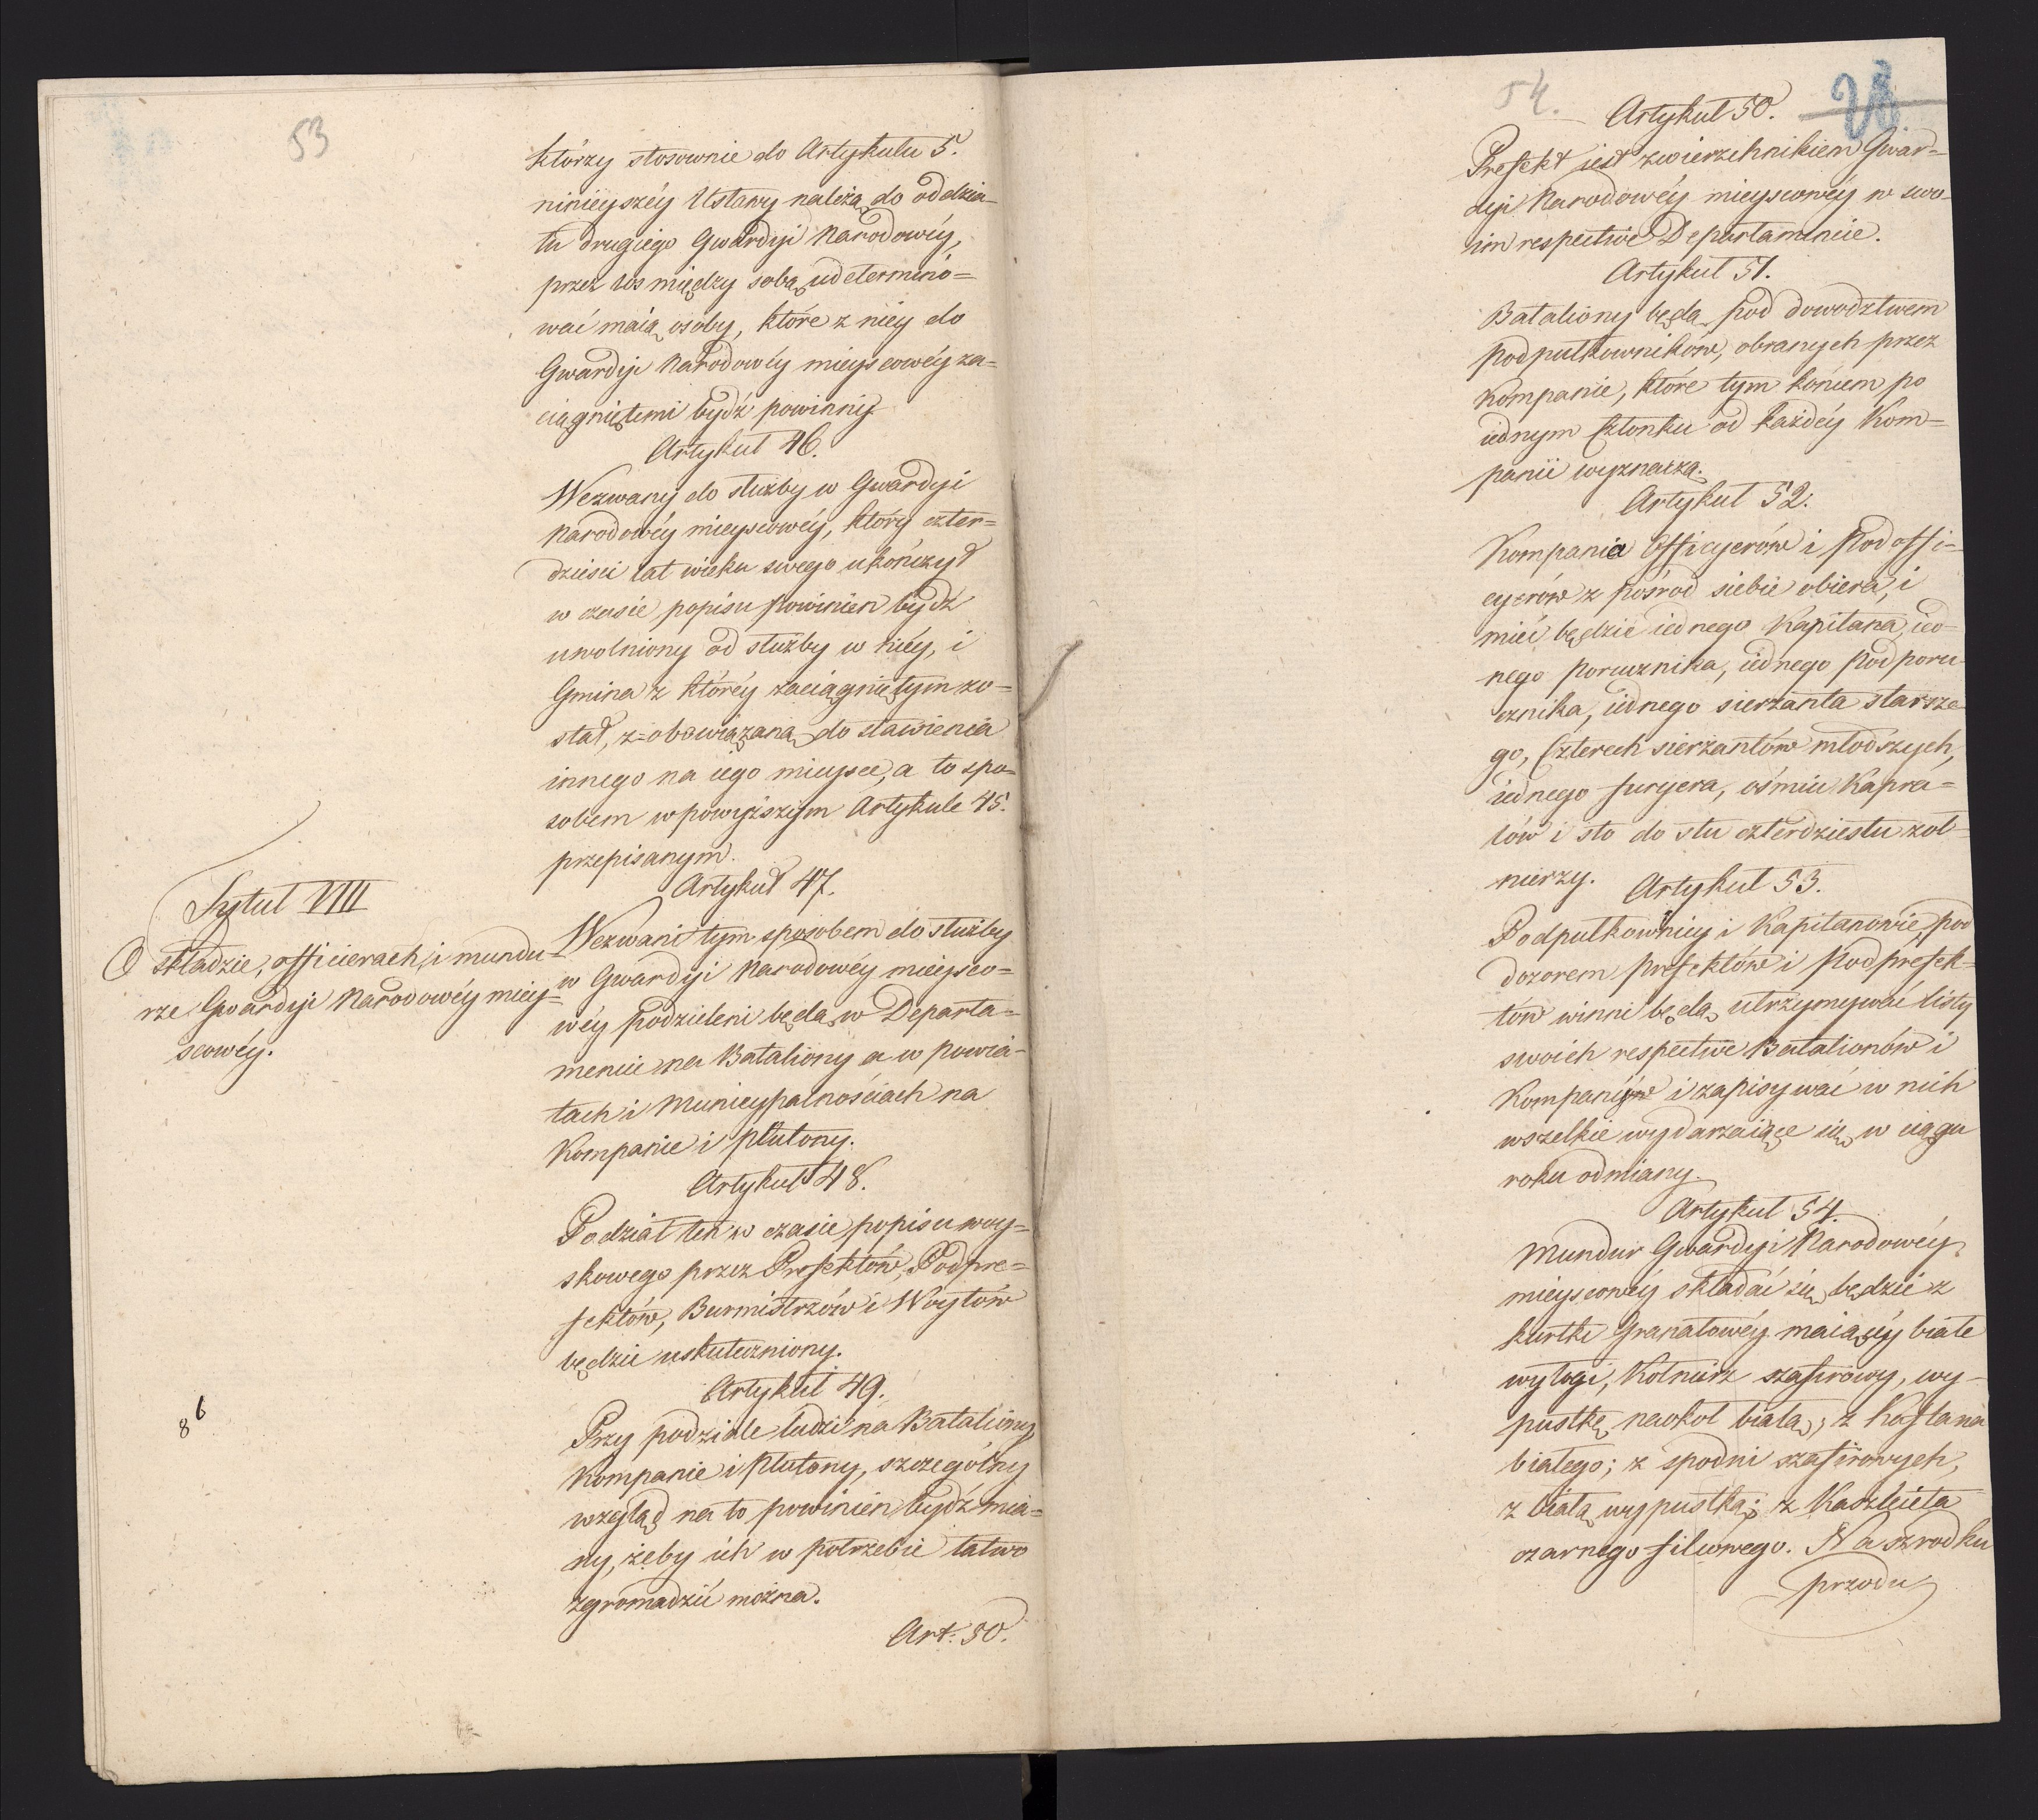 53
którzy stosownie do Artykułu 5.
ninieyszéy Ustawy należą do oddzia-
łu drugiego Gwardyi Narodowéy,
przez los między sobą udeterminó=
wać maią osoby, które z niey do
Gwardyi Narodowéy mieyscowéy za=
ciągniętemi bydź powinny
Artykuł 46.
Wezwany do służby w Gwardyi
Narodowéy mieyscowéy, który czter=
dzieści lat wieku swego ukończył
w czasie popisu powinien bydź
uwolniony od służby w niéy, i
Gmina z któréy zaciągniętym zo=
stał, z=obowiązaną do stawienia
innego na iego mieysce, a to spo=
sobem w powyższym Artykule 45.
przepisanym.
Artykuł 47.
Tytuł VIII
O składzie, officierach, i mundu=
rze Gwardyi Narodowéy miey=
scowéy.
Wezwani tym sposobem do służby
w Gwardyi Narodowéy mieysco=
wéy podzieleni będą w Departa=
mencie na Bataliony a w powia-
tach i Municypalnościach na
Kompanie i plutony.
Artykuł 48.
Podział ten w czasie popisu woy=
skowego przez Prefektów, Podpre=
fektów, Burmistrzów i Woytów
będzie uskuteczniony.
Artykuł 49.
8 6
Przy podziale ludzi na Bataliony,
Kompanie i plutony, szczególny
wzgląd na to powinien bydź mia=
ny, żeby ich w potrzebie łatwo
zgromadzić można.
Art: 50.
54.
28
Artykuł 50.
Prefekt jest zwierzchnikiem Gwar=
dyi Narodowéy mieyscowéy w swo-
im respective Departamencie.
Artykuł 51.
Bataliony będą pod dowodztwem
podpułkowników, obranych przez
Kompanie, które tym końcem po
iednym Członku od każdéy Kom=
panii wyznaczą.
Artykuł 52.
Kompania Officyerów i Podoffi-
cyerów z pośrod siebie obiera, i
mieć będzie iednego Kapitana, ied-
nego porucznika, iednego podporu-
cznika, iednego sierżanta starsze-
go, Czterech sierżantów młodszych,
iednego furyera, ośmiu Kapra=
lów i sto do stu czterdziestu żoł-
nierzy.
Artykuł 53.
Podpułkownicy i Kapitanowie pod
dozorem prefektów i Podprefek-
tów winni będą utrzymywać listy
swoich respective Batalionów i
Kompaniiów i zapisywać w nich
wszelkie wydarzaiące się w ciągu
roku odmiany.
Artykuł 54.
Mundur Gwardyi Narodowéy
mieyscowéy składać się będzie z
kurtki Granatowéy maiącéy białe
wyłogi, Kołnierz szafirowy, wy-
pustkę naokoł białą; z Kaftana
białego; z spodni szafirowych,
z białą wypustką; z Kaszkieta
czarnego filcowego. Na szrodku
przodu